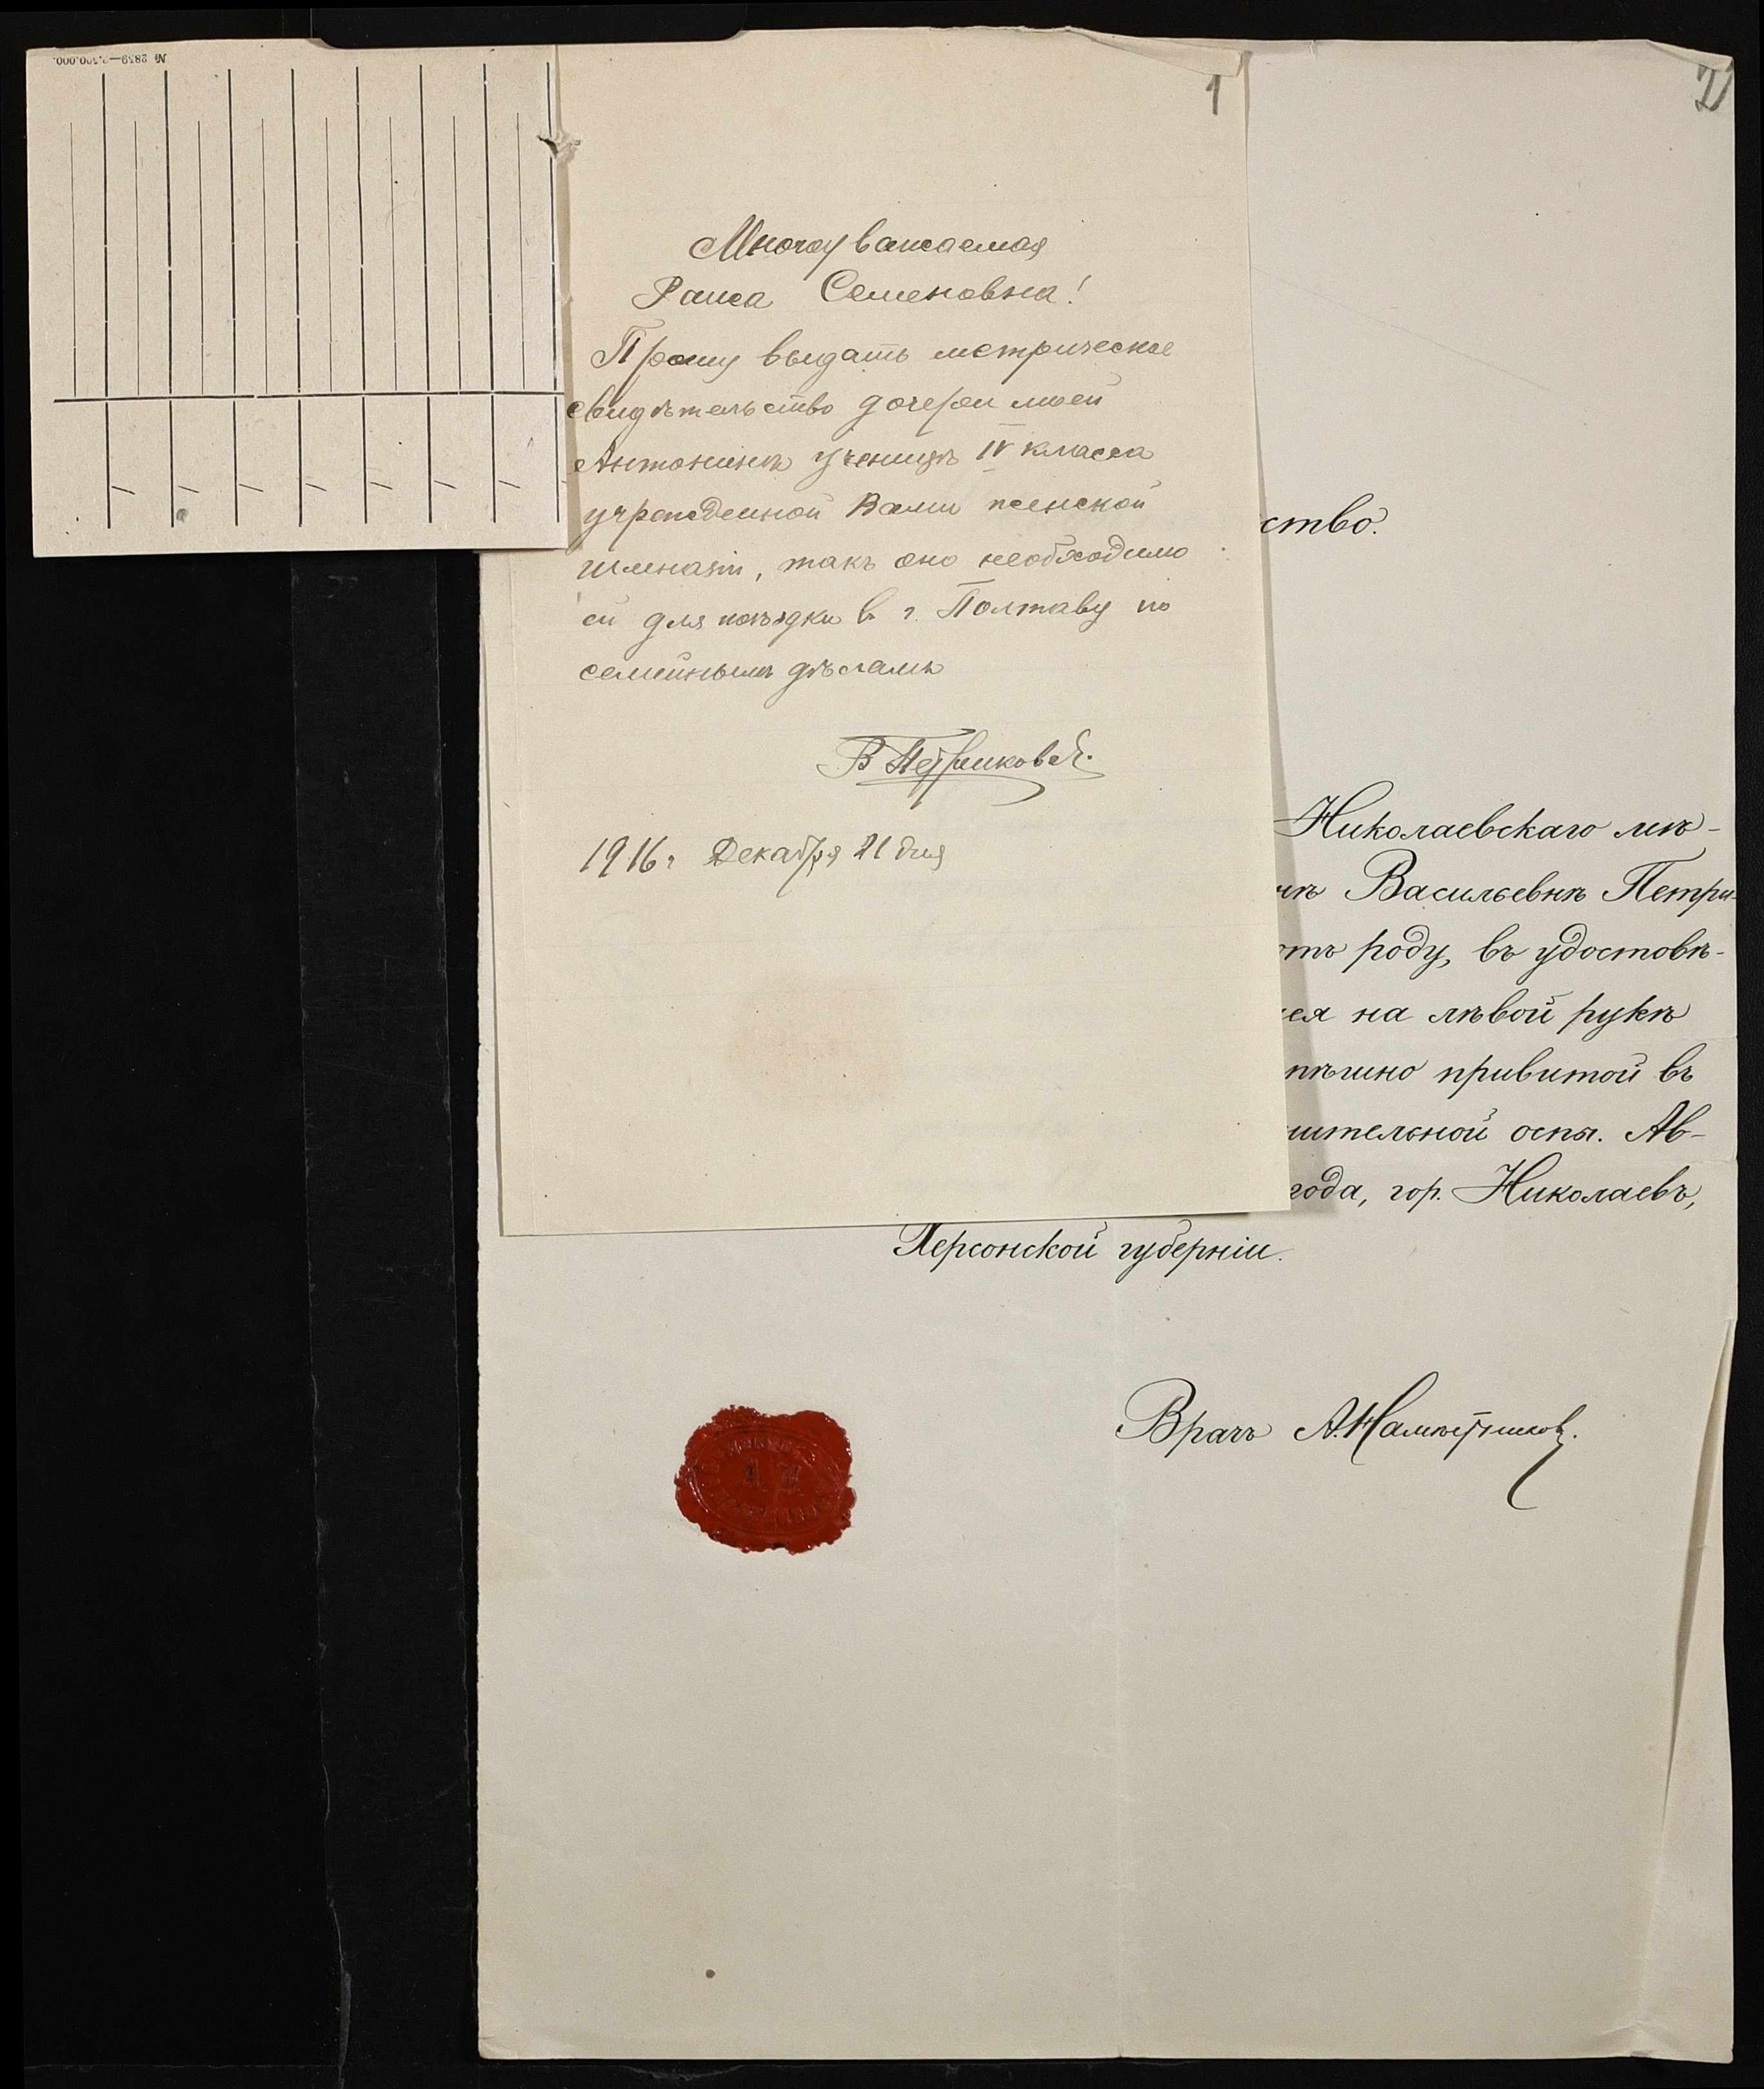 № 2839—2.500.000.
1
Многоуважаемая
Раиса Семеновна!
Прошу выдать метрическое
свидѣтельство дочери моей
Антонинѣ ученицѣ IV класса
учрежденной Вами женской
гимназiи, такъ оно необходимо
ей для поѣздки в г. Полтаву по
семейнымъ дѣламъ
В Петриковъ.
1916 г Декабря 21 дня
2
ство.
Николаевскаго мѣ-
нѣ Васильевнѣ Петри-
отъ роду, въ удостовѣ-
ся на лѣвой рукѣ
пѣшно привитой въ
нительной оспы. Ав-
года, гор. Николаевъ,
Херсонской губернiи.
Врачъ А.